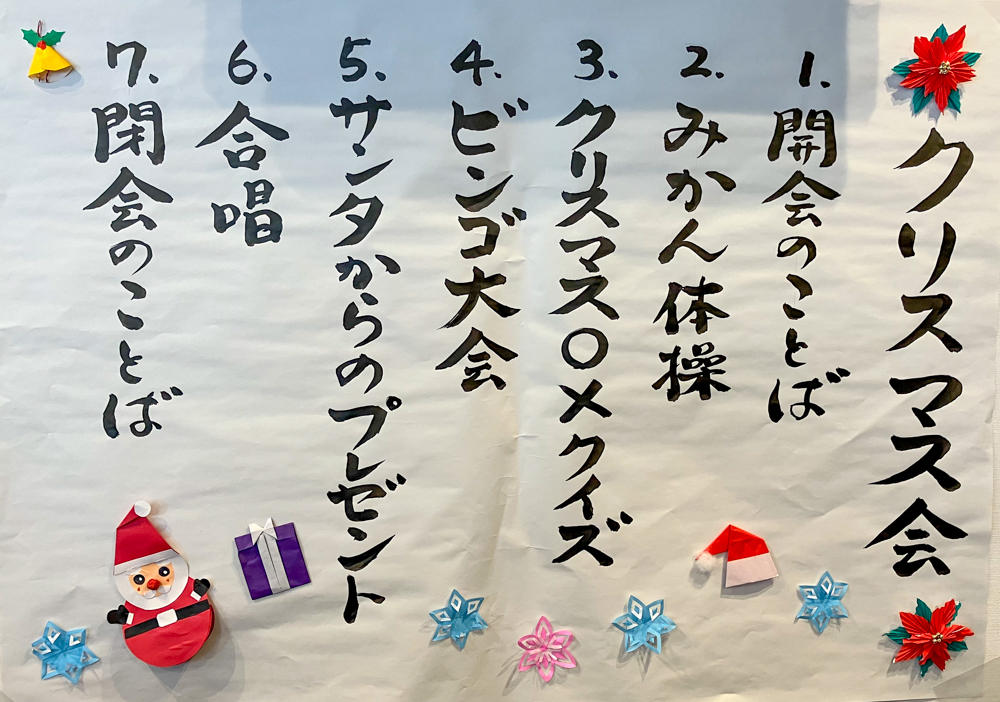 クリスマス会
1. 開会のことば
2. みかん体操
3. クリスマス〇×クイズ
4. ビンゴ大会
5. サンタからのプレゼント
6. 合唱
7. 閉会のことば